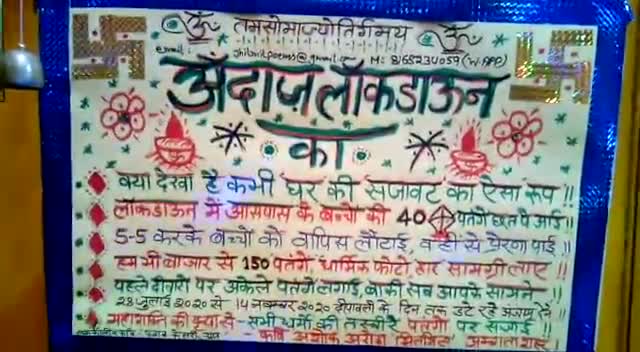 ॐ तमसोमाज्योतिर्गमय ॐ
email: M: 8168234059 (W.APP)
अंदाज लॉकडाऊन
का
क्या देखा है कभी घर की सजावट का ऐसा रूप !!
लॉकडाऊन में आसपास के बच्चों की 40 पतंगें छत पे आई !!
5-5 करके बच्चों को वापिस लौटाई, वहीं से प्रेरणा पाई !!
हम भी बाजार से 150 पतंगें, धार्मिक फोटो, हार सामग्री लाए !!
पहले दीवारों पर अकेले पतंगें लगाई, बाकी सब आपके सामने !!
28 जुलाई 2020 से 14 नवम्बर 2020 दीपावली के दिन तक डटे रहे
की कृपा से - सभी धर्मों की तस्वीरें पतंगों पर सजाई !!
कवि अशोक अरोड़ा